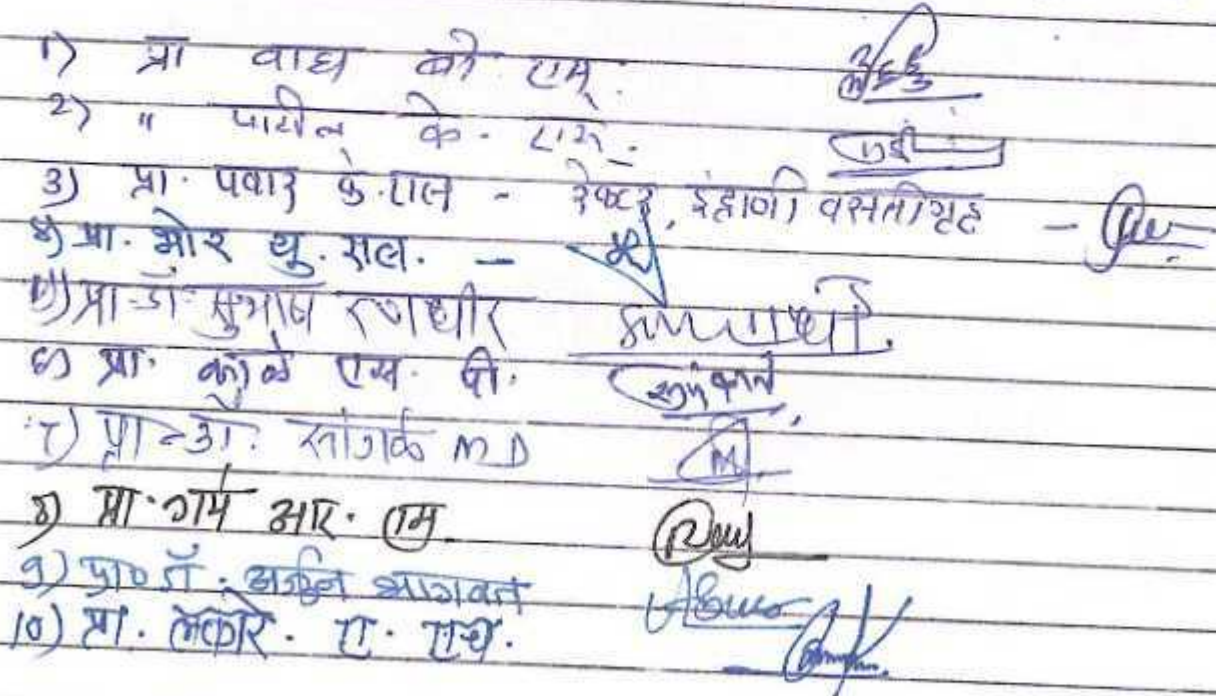 1) प्रा वाघ बी. एम.
2) " पाटील के. एस.
3) प्रा. पवार के. एल - रेक्टर, इंद्राणी वसतीगृह -
४) प्रा. मोर यु. एल. -
५) प्रा-डॉ सुभाष रणधीर
६) प्रा. काळे एस. पी.
7) प्रा-डॉ. सांगळे M D
8) प्रा. गमे आर. एम.
9) प्रा० डॉ. अर्जुन भागवत
10) प्रा. ए. एच.